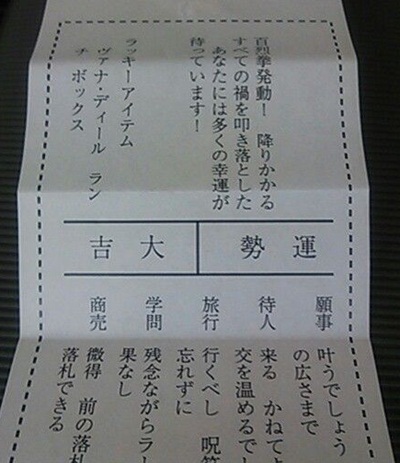 百烈拳発動！　降りかかる
すべての禍を叩き落とした
あなたには多くの幸運が
待っています！
ラッキーアイテム
ヴァナ・ディール　ラン
チ　ボックス
運勢
大吉
願事　叶うでしょう
の広さまで
待人　来る　かねてよ
交を温めるでし
旅行　行くべし　呪符
忘れずに
学問　残念ながらラー
果なし
商売　微得　前の落札
落札できる